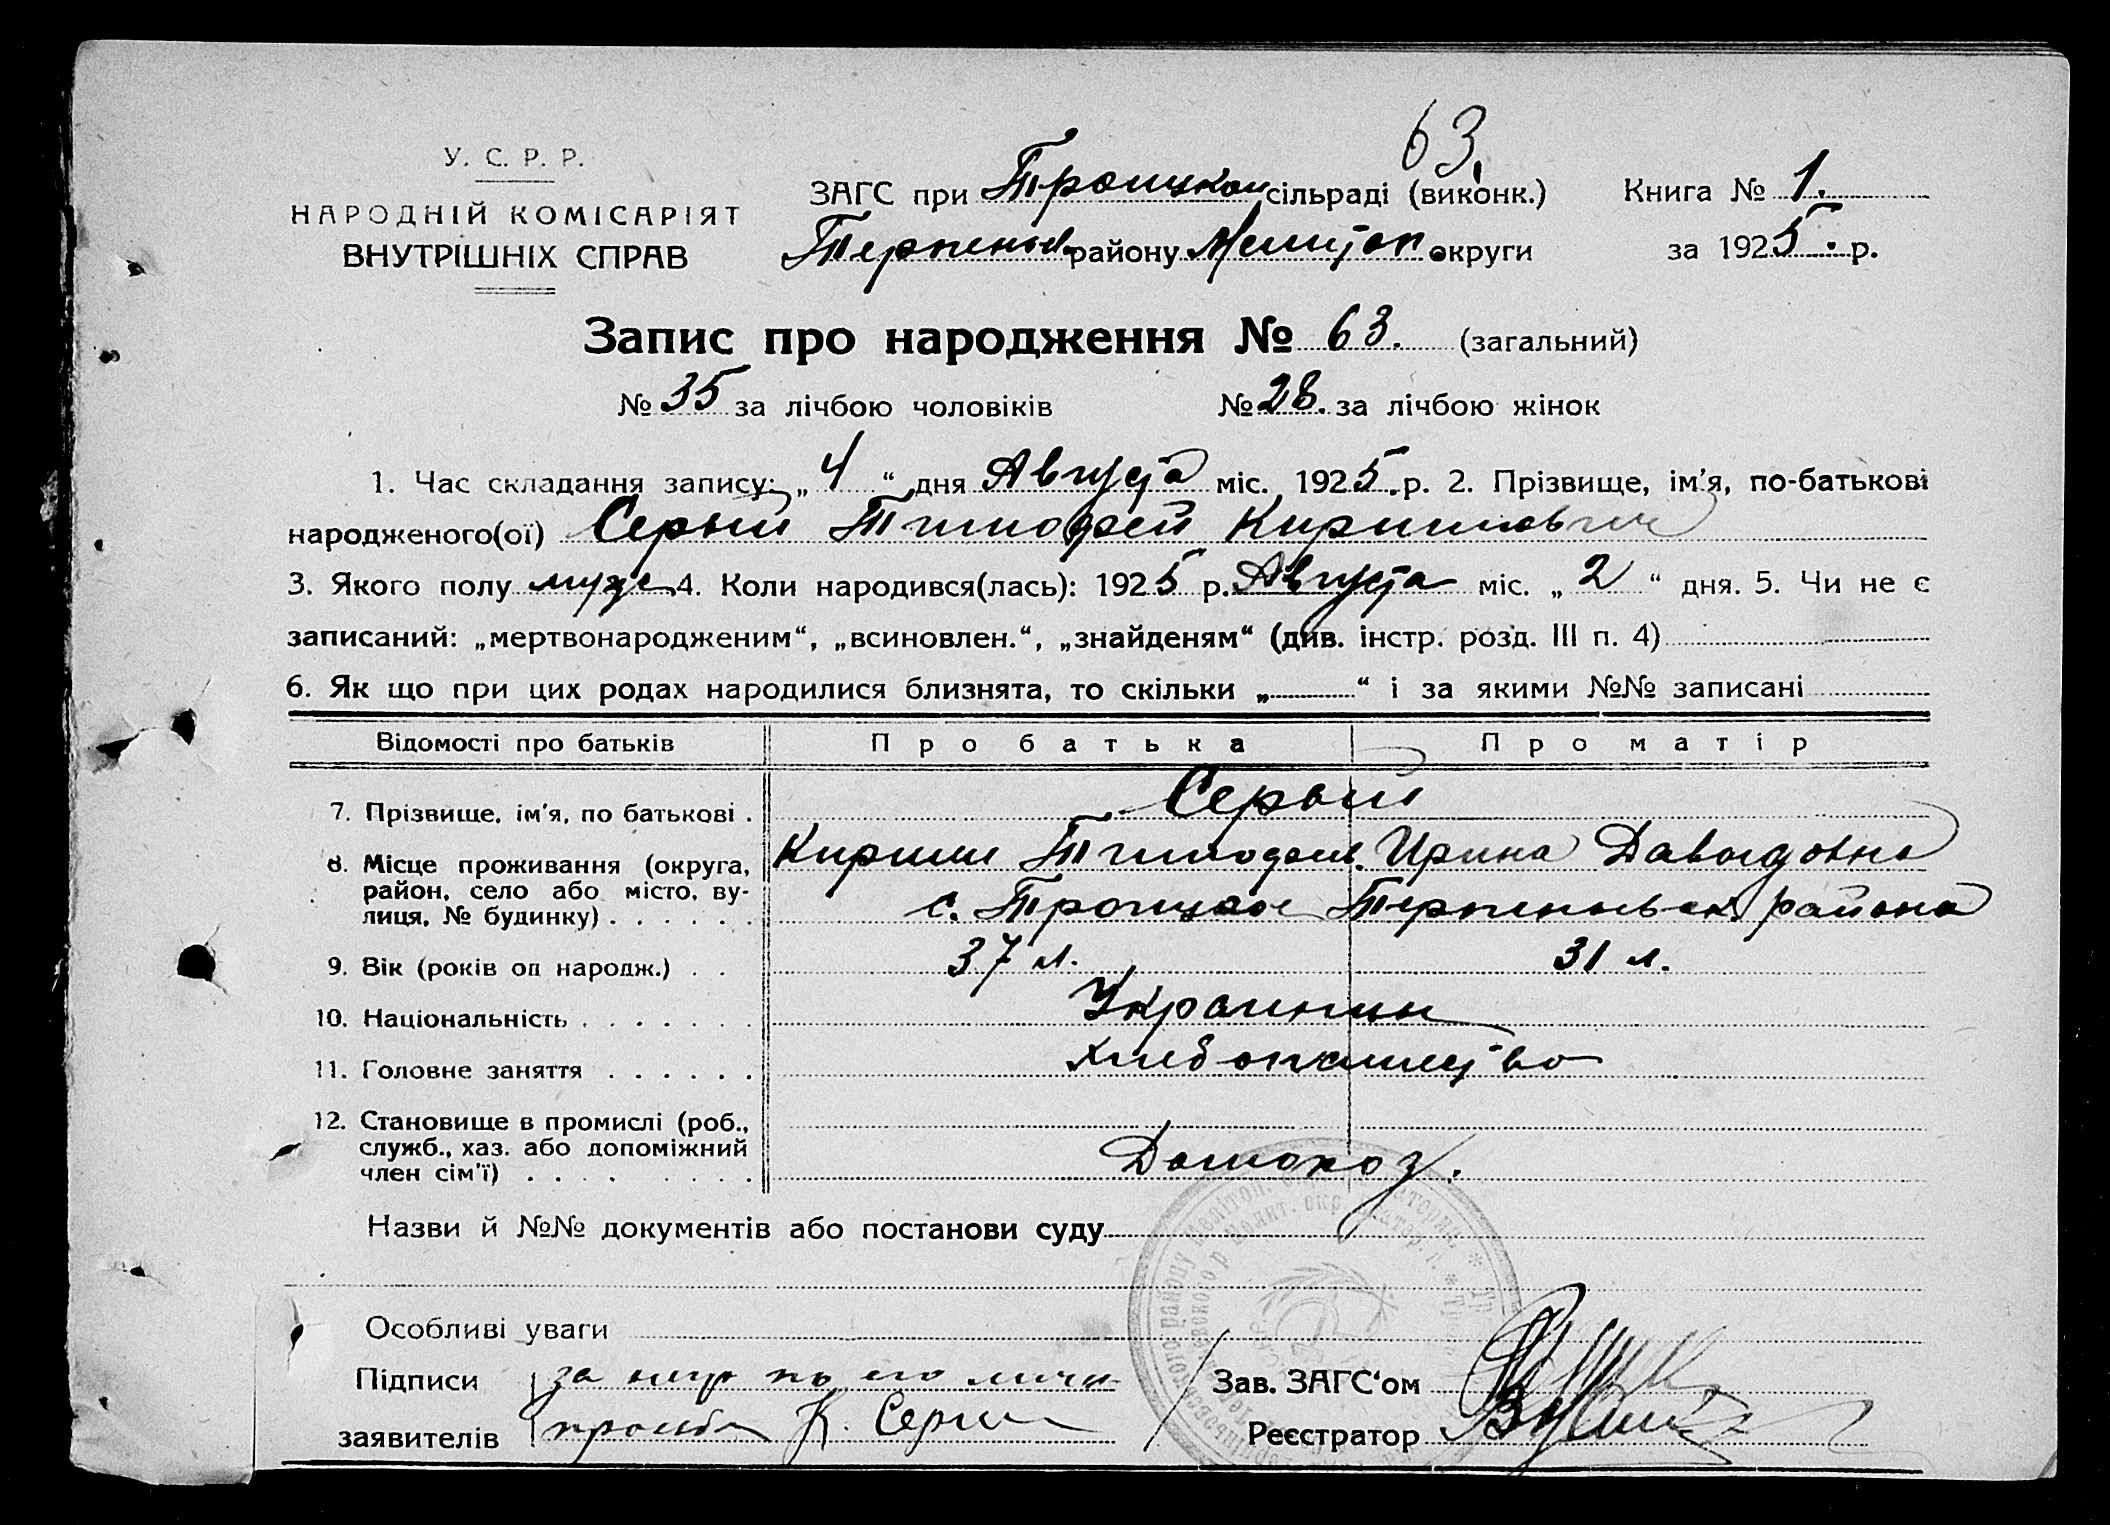 63.
У. С. Р. Р.
НАРОДНІЙ КОМІСАРІЯТ
ВНУТРІШНІХ СПРАВ
ЗАГС при Троицком сільраді (виконк.) Книга № 1.
Терпеньев району Мелитоп округи за 1925 р.
Запис про народження № 63. (загальний)
№ 35 за лічбою чоловіків № 28. за лічбою жінок
1. Час складання запису: „4“ дня Августа міс. 1925 р. 2. Прізвище, ім'я, по-батькові
народженого(ої) Серый Тимофей Кириллович
3. Якого полу муж 4. Коли народився(лась): 1925 р. Августа міс. „2“ дня. 5. Чи не є
записаний: „мертвонародженим“, „всиновлен.“, „знайденям“ (див. інстр. розд. III п. 4)
6. Як що при цих родах народилися близнята, то скільки „ “ і за якими №№ записані
Відомості про батьків Про батька Про матір
7. Прізвище, ім'я, по батькові . Серый
Кирилл Тимофеев. Ирина Давыдовна
8. Місце проживання (округа,
район, село або місто, ву-
лиця, № будинку) . . . . . . с. Троицкое Терпеньевск района
9. Вік (років од народж.) . . 37 л. 31 л.
10. Національність . . . . . . . Украинцы
11. Головне заняття . . . . . . хлебопашество
12. Становище в промислі (роб.,
служб., хаз. або допоміжний
член сім'ї) . . . . . . . . Домохоз.
Назви й №№ документів або постанови суду
Особливі уваги
Підписи за негр по его личн
заявителів просьбе К. Серый
Зав. ЗАГС'ом
Реєстратор